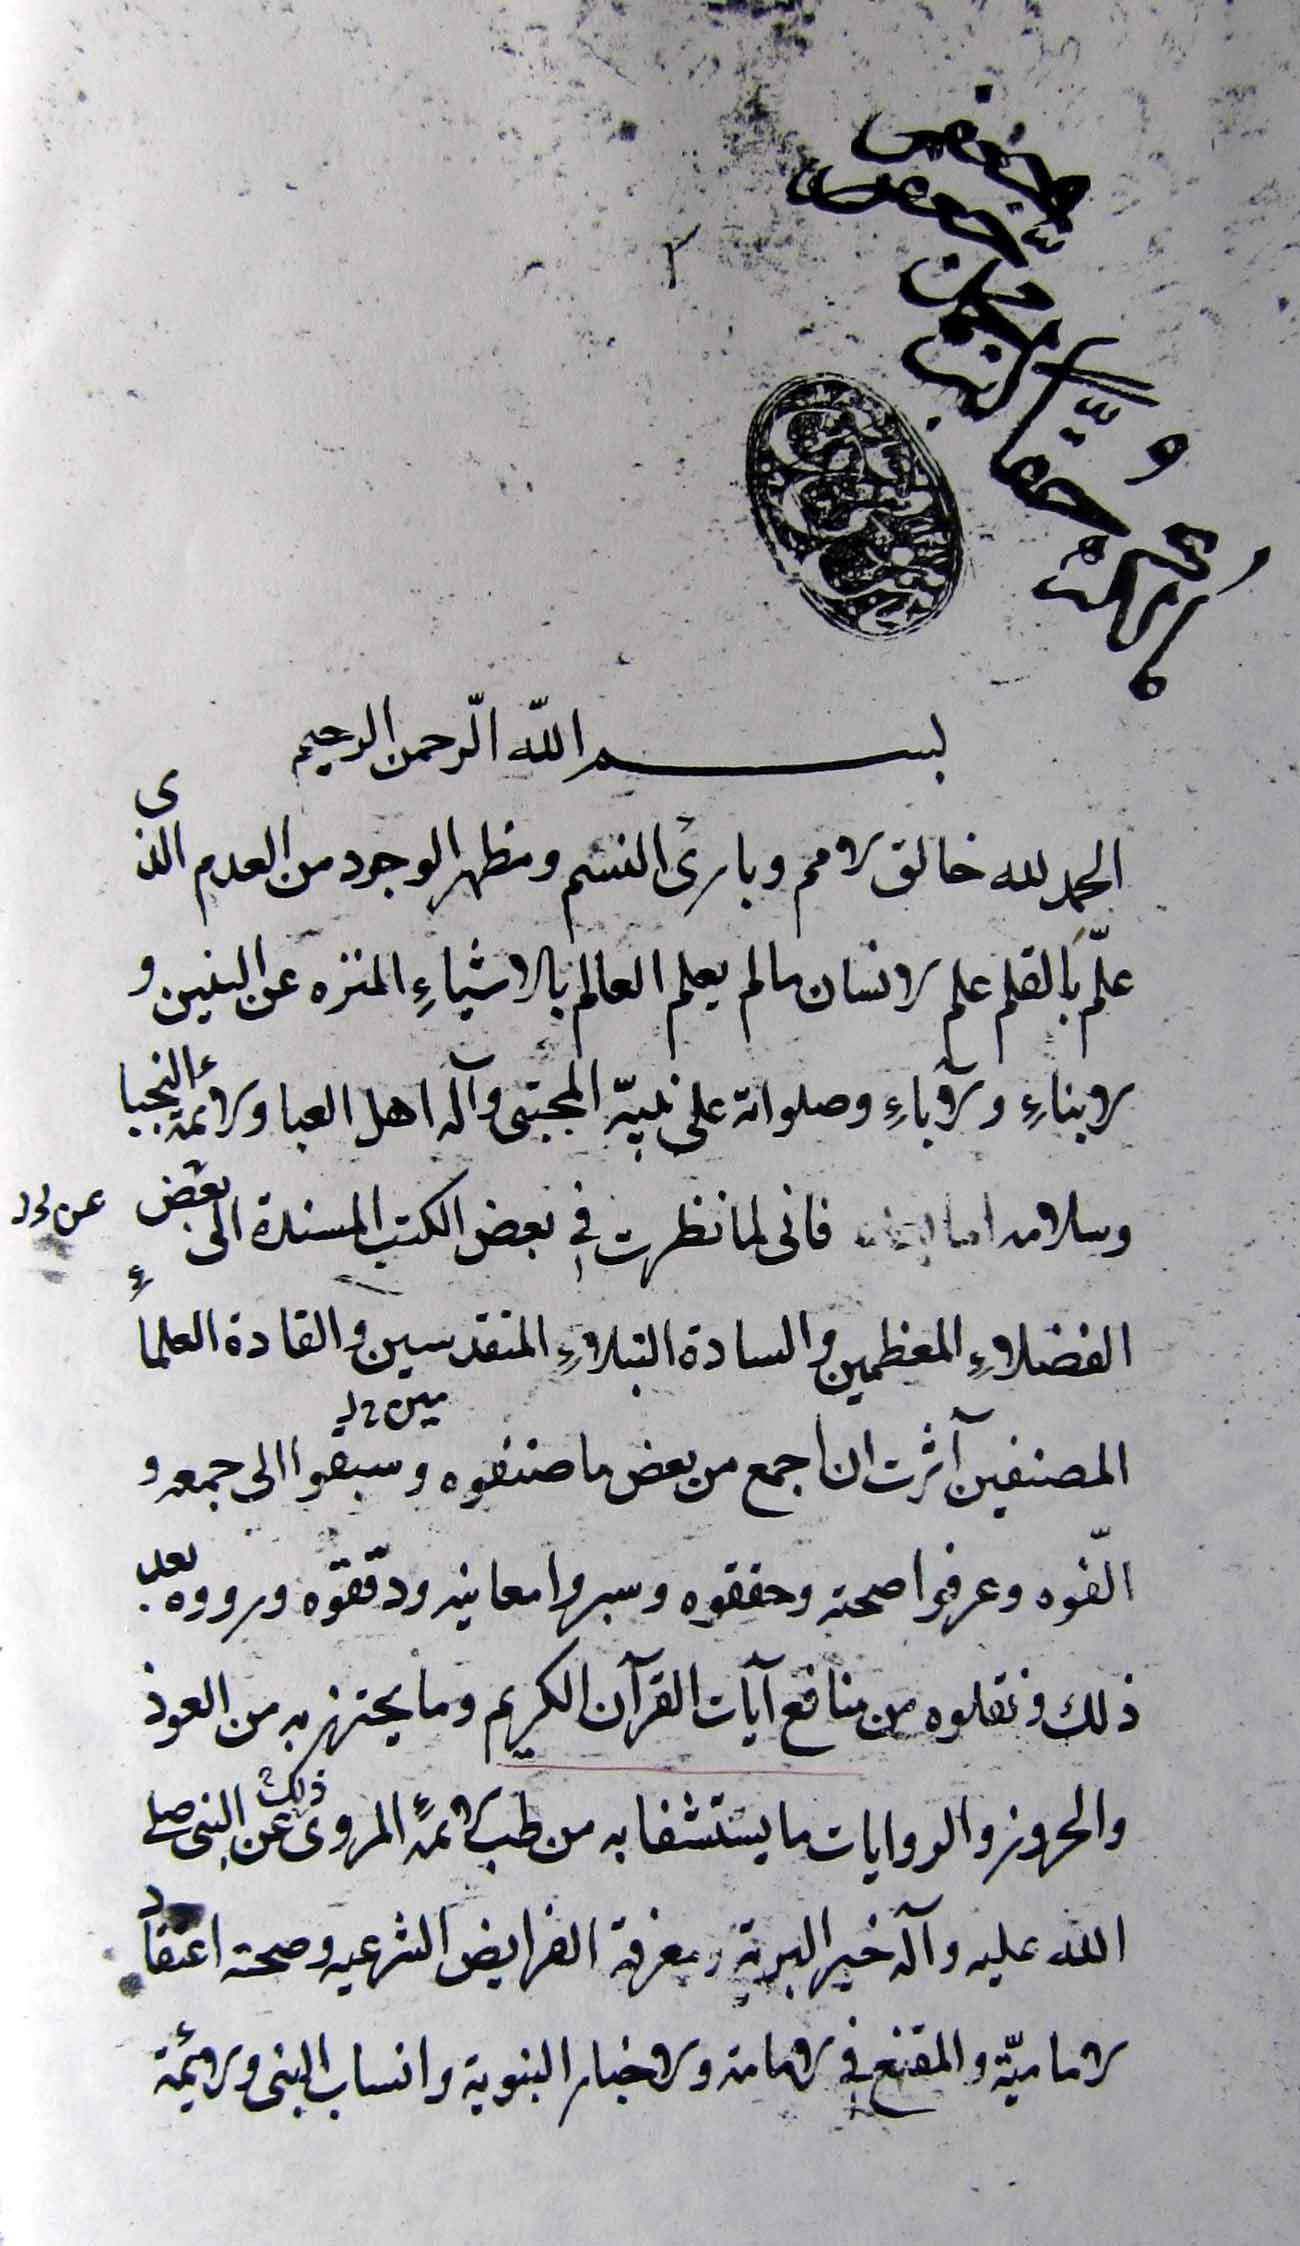 بسم الله الرّحمن الرحيم
الحمد لله خالق الامم وبارئ النسم ومظهر الوجود من العدم الذى
علّم بالقلم علم الانسان مالم يعلم العالم بالاشياءِ المنزه عن البنين و
الابناءِ والآباءِ وصلواته على نبيّه المجتبى وآله اهل العبا والائمة النجباء
وسلامه اما بعد فانى لما نظرت فى بعض الكتب المسندة الى بعض
الفضلاءِ المعظمين والسادة النبلاءِ المتقدسين والقادة العلماءِ
المصنفين آثرت ان اجمع من بعض ما صنفوه وسبقوا الى جمعه و
الّفوه وعرفوا صحته وحققوه وسبروا معانيه ودقّقوه ورووه بعد
ذلك ونقلوه من منافع آيات القرآن الكريم وما يحترز به من العوذ
والحروز والروايات ما يستشفا به من طب الائمة المروى ذلك عن النبى صلى
الله عليه وآله خير البرية ومعرفة الفرايض الشرعيه وصحة اعتقاد
الاماميّة والمقنع فى الامامة والاخبار النبوية وانساب النبى والائمة